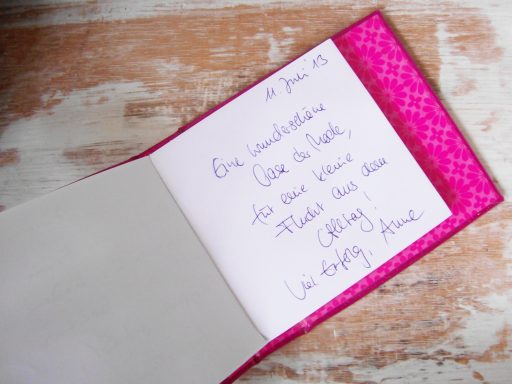 11. Juli '13
Eine wunderschöne
Oase der Mode,
für eine kleine
Flucht aus dem
Alltag!
Viel Erfolg, Anne